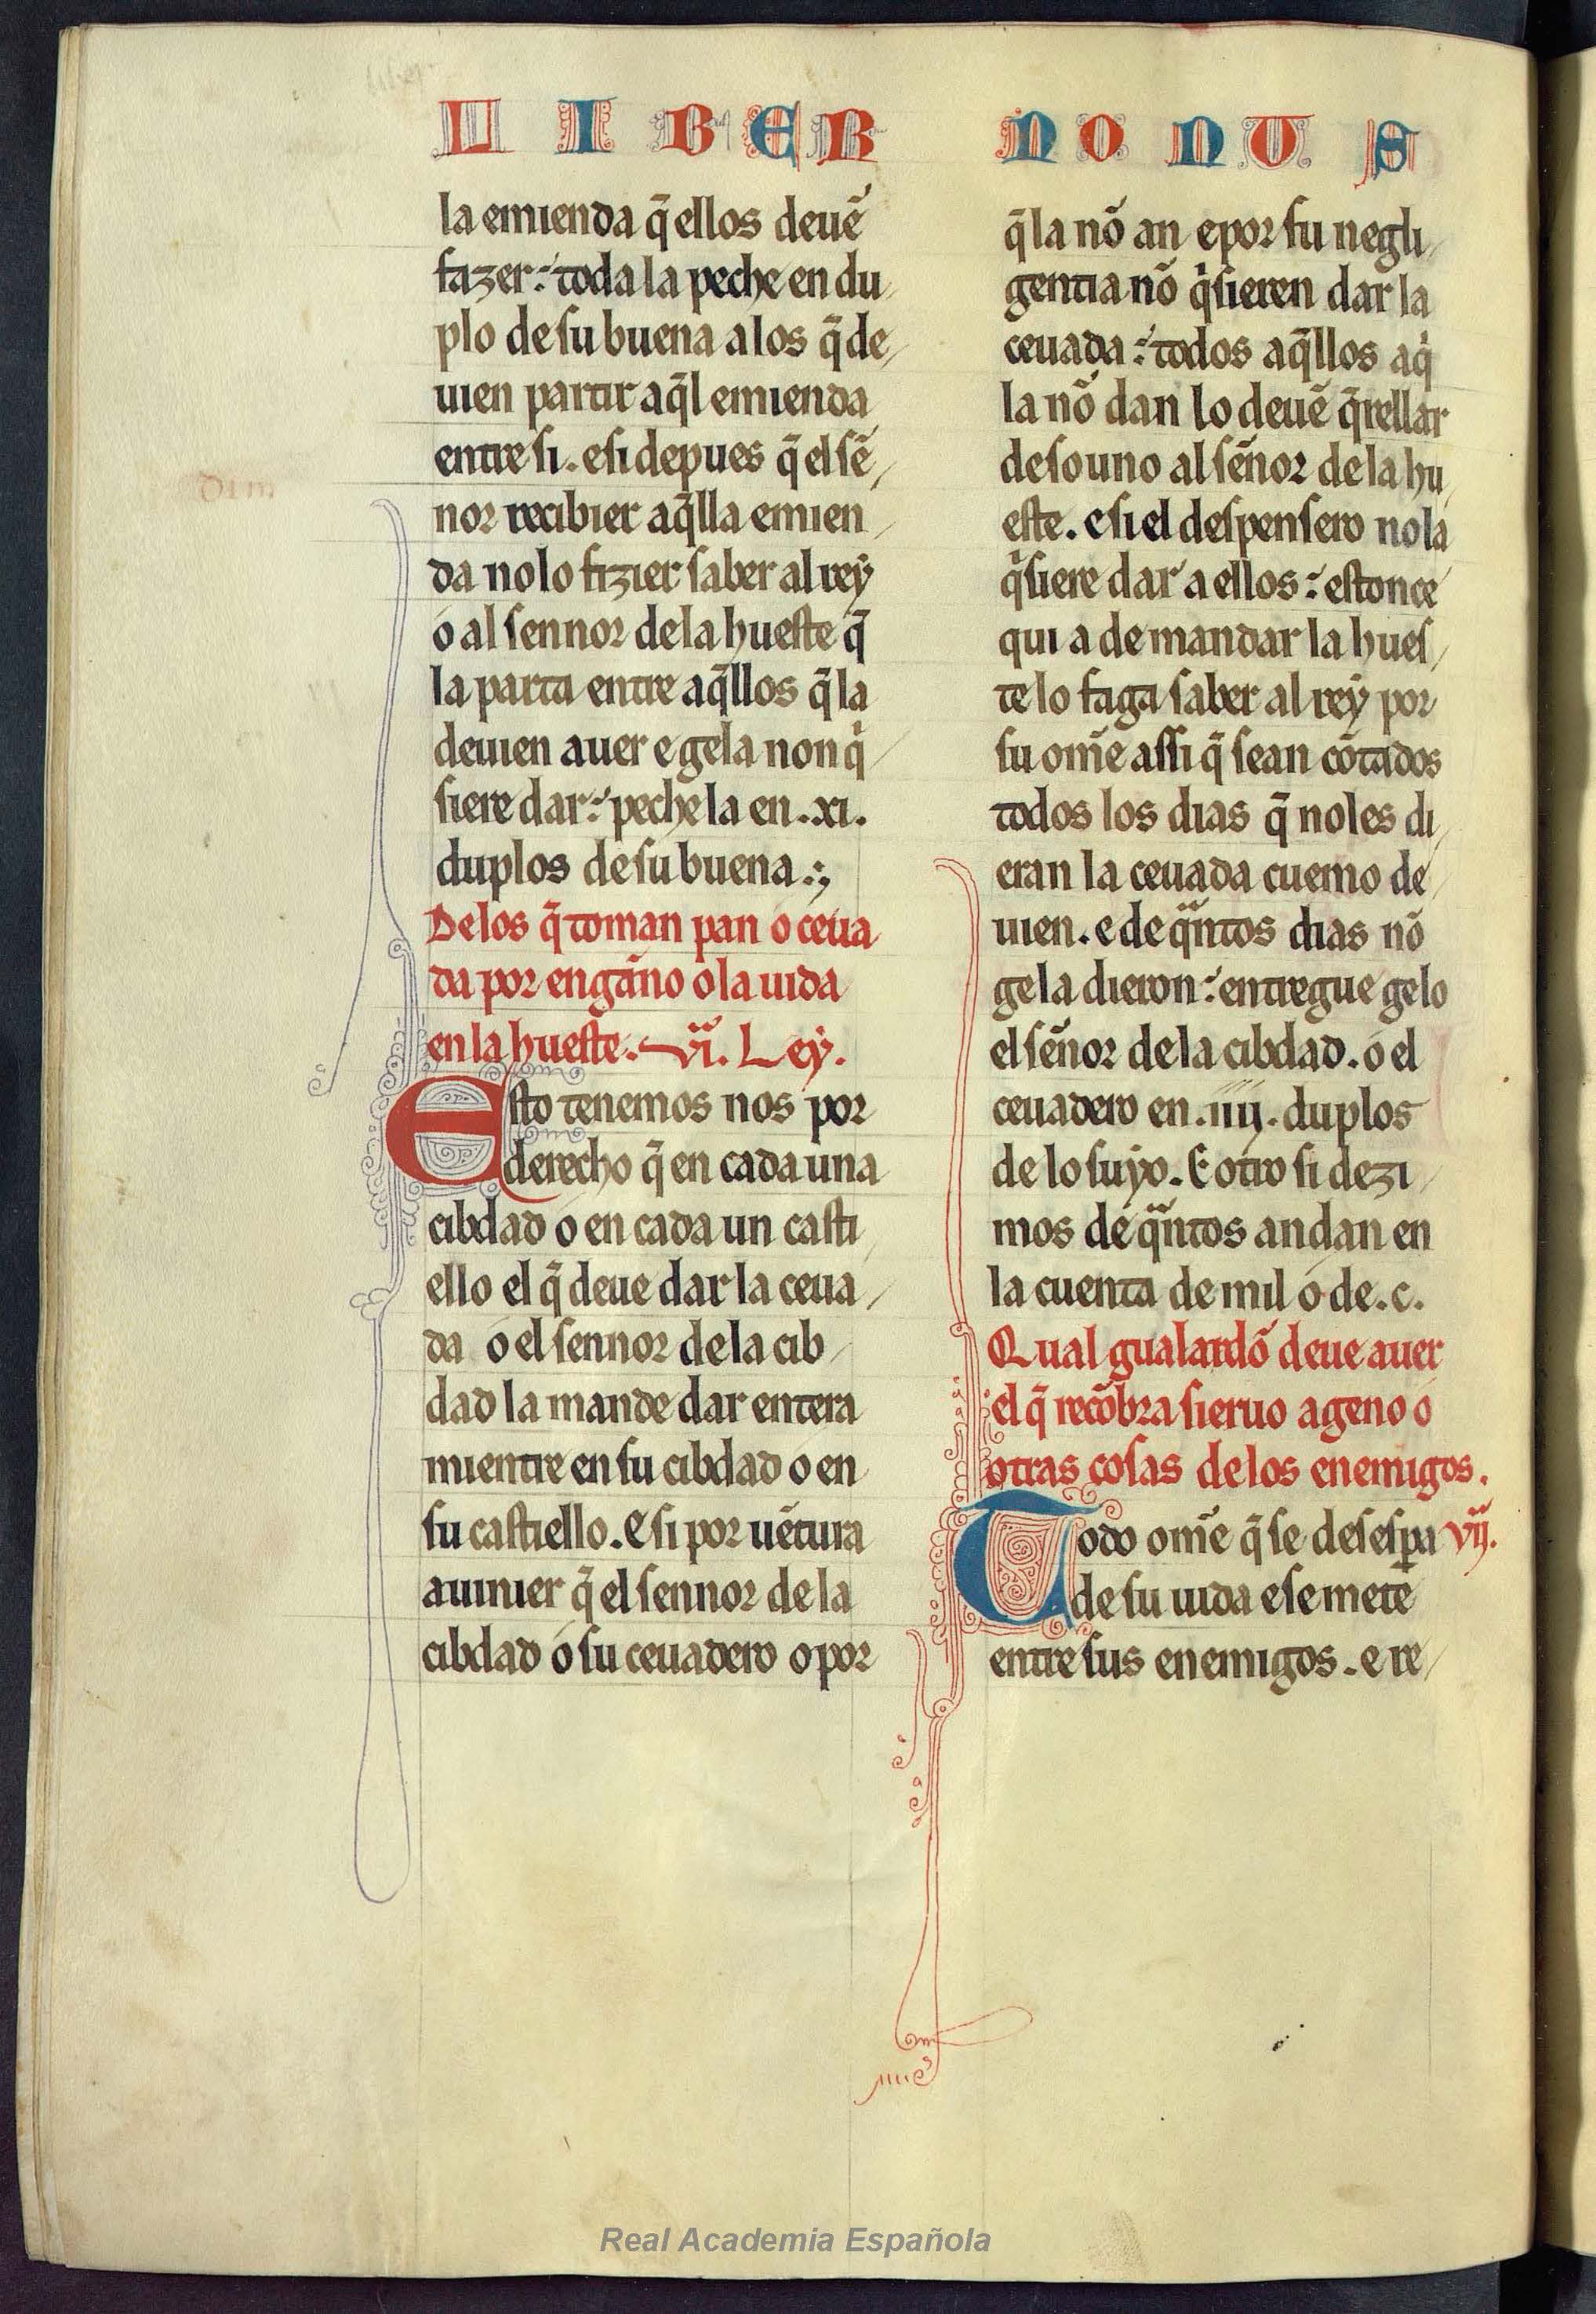 LIBER NONUS
la emienda q̃ ellos deuẽ
fazer: toda la peche en du
plo de su buena a los q̃ de
uien partir aq̃l emienda
entre si. e si depues q̃ el sẽ
nor recibier aq̃lla emien
da no lo fizier saber al rey
o al sennor de la hueste q̃
la parta entre aq̃llos q̃ la
deuien auer e gela non q̇
siere dar: peche la en .xi.
duplos de su buena.
De los q̃ toman pan o ceua
da por engãno o la uida
en la hueste. vi. Ley.
Esto tenemos nos por
derecho q̃ en cada una
cibdad o en cada un casti
ello el q̃ deue dar la ceua
da o el sennor de la cib
dad la mande dar entera
mientre en su cibdad o en
su castiello. E si por uẽtura
auinier q̃ el sennor de la
cibdad o su ceuadero o por
q̃ la nõ an e por su negli
gentia nõ q̇sieren dar la
ceuada: todos aq̃llos a q̇
la nõ dan lo deuẽ q̃rellar
de so uno al sẽnor de la hu
este. e si el despensero no la
q̇siere dar a ellos: estonce
qui a de mandar la hues
te lo faga saber al rey por
su om̃e assi q̃ sean cõtados
todos los dias q̃ no les di
eran la ceuada cuemo de
uien. e de qᷓntos dias nõ
ge la dieron: entregue gelo
el sẽnor de la cibdad. o el
ceuadero en .iiij. duplos
de lo suyo. E otro si dezi
mos de qᷓntos andan en
la cuenta de mil o de .c.
Qual gualardõ deue auer
el q̃ recõbra sieruo ageno o
otras cosas de los enemigos.
Todo om̃e q̃ se desesꝑa vij.
de su uida e se mete
entre sus enemigos. e re
Real Academia Española